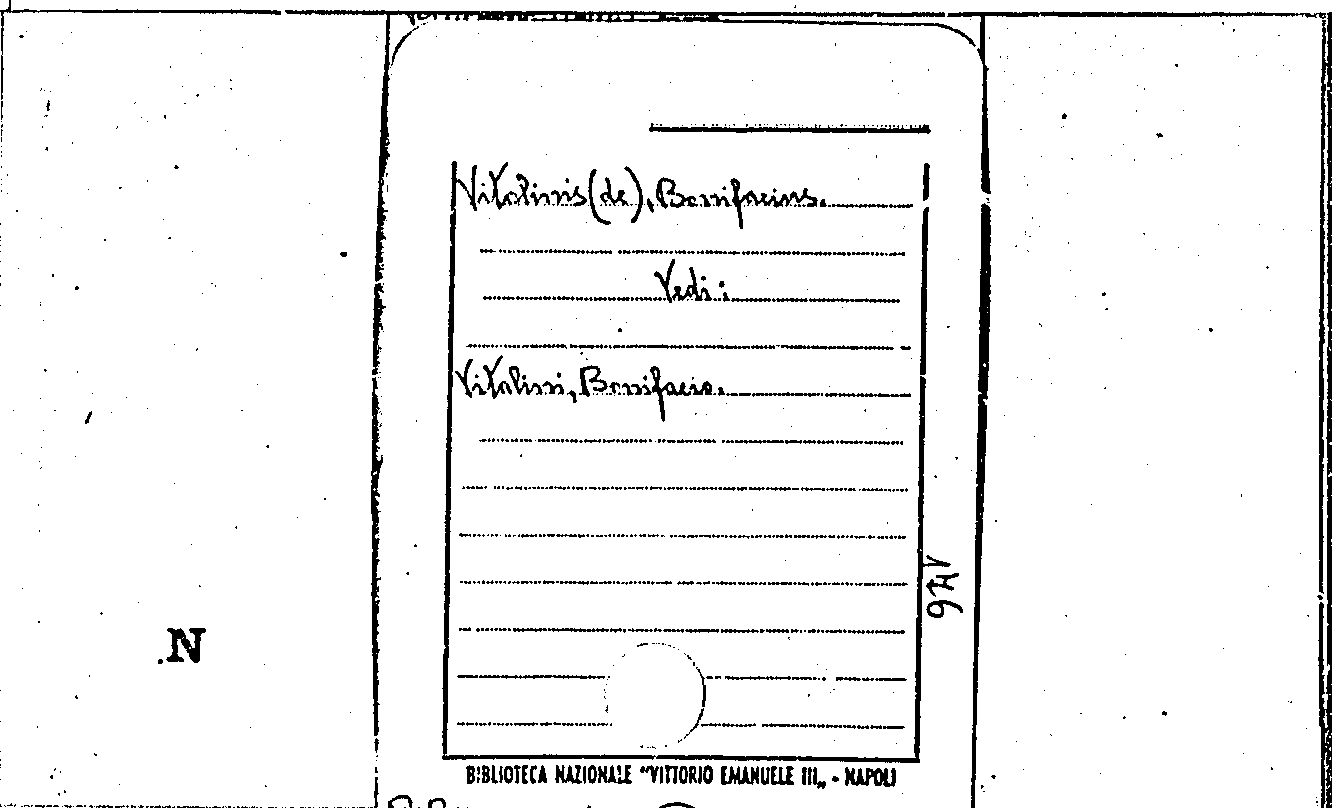 Vitalinis (de), Bonifacius.
Vedi:
Vitalini, Bonifacio.
N
BIBLIOTECA NAZIONALE "VITTORIO EMANUELE III„ - NAPOLI